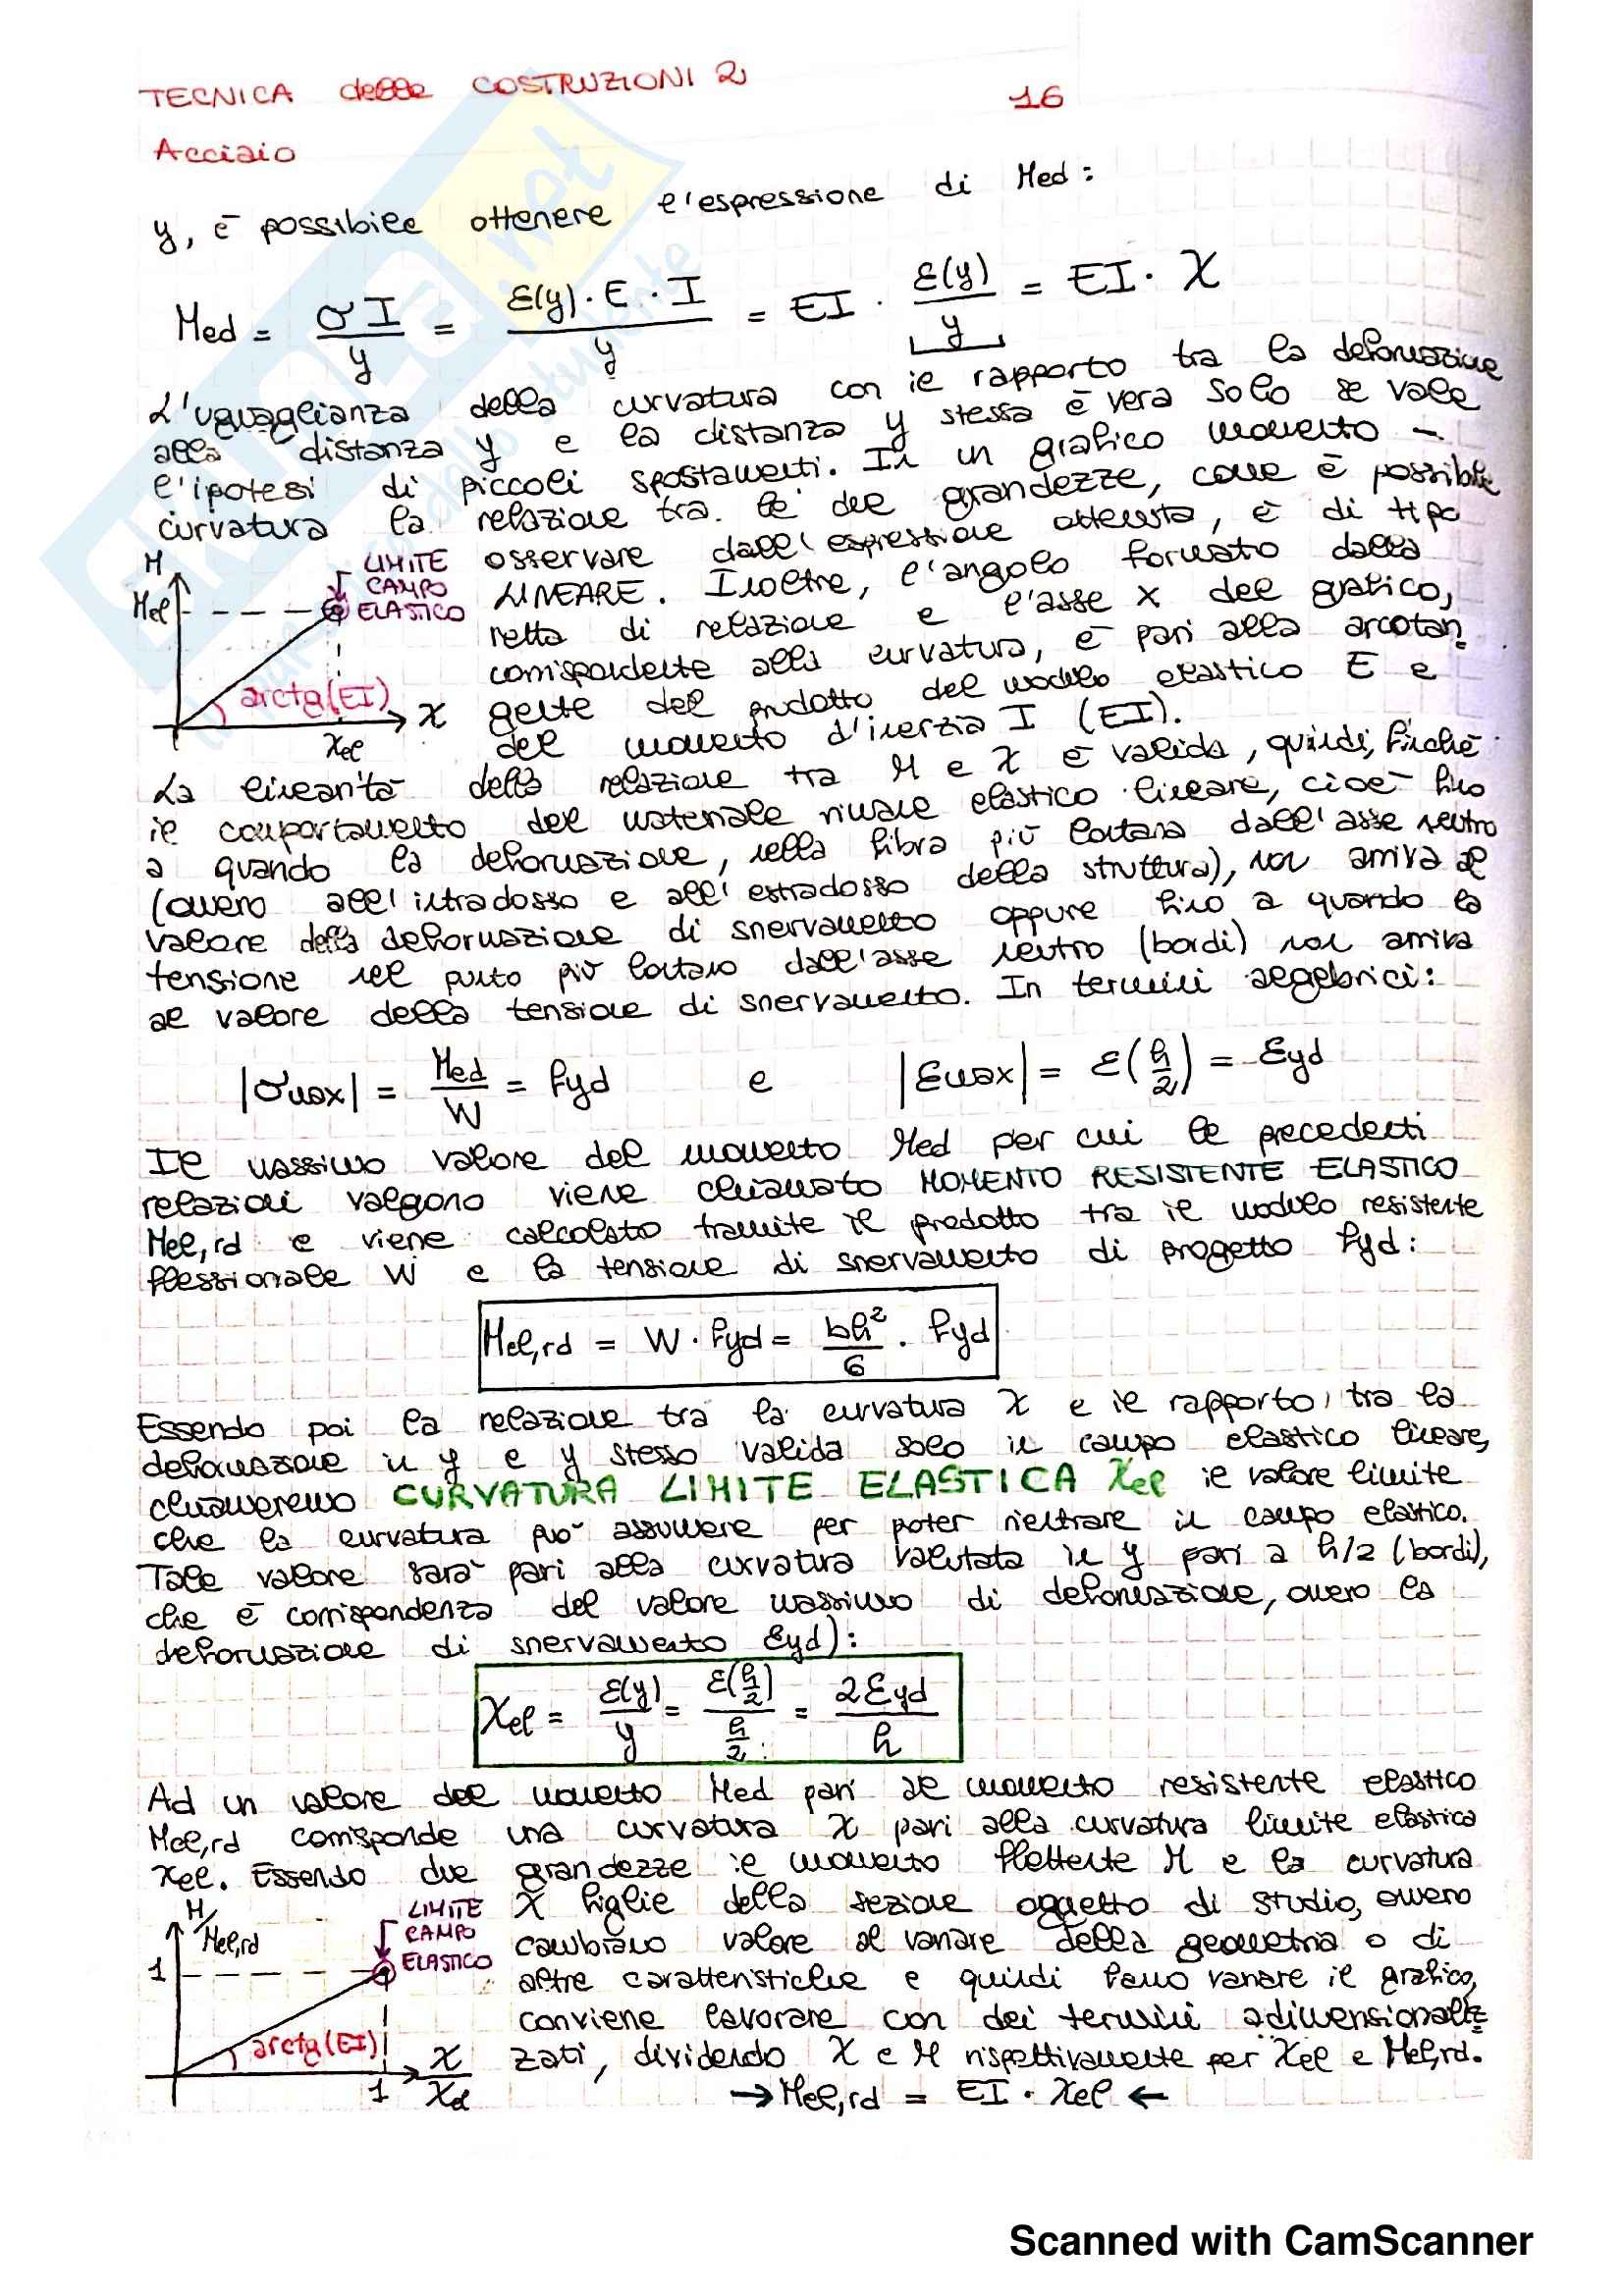 TECNICA delle COSTRUZIONI 2 16
Acciaio
y, è possibile ottenere l'espressione di Med:
Med = σI/y = ε(y)·E·I/y = EI · ε(y)/y = EI · χ
L'uguaglianza della curvatura con il rapporto tra la deformazione
alla distanza y e la distanza y stessa è vera solo se vale
l'ipotesi di piccoli spostamenti. In un grafico momento –
curvatura la relazione tra le due grandezze, come è possibile
osservare dall'espressione ottenuta, è di tipo
LINEARE. Inoltre, l'angolo formato dalla
retta di relazione e l'asse x del grafico,
corrispondente alla curvatura, è pari alla arcotan
gente del prodotto del modulo elastico E e
del momento d'inerzia I (EI).
M
Mel
LIMITE
CAMPO
ELASTICO
arctg(EI)
χ
χel
La linearità della relazione tra M e χ è valida, quindi, finchè
il comportamento del materiale rimane elastico lineare, cioè fino
a quando la deformazione, nella fibra più lontana dall'asse neutro
(ovvero all'intradosso e all'estradosso della struttura), non arriva al
valore della deformazione di snervamento oppure fino a quando la
tensione nel punto più lontano dall'asse neutro (bordi) non arriva
al valore della tensione di snervamento. In termini algebrici:
|σmax| = Med/W = fyd e |εmax| = ε(h/2) = εyd
Il massimo valore del momento Med per cui le precedenti
relazioni valgono viene chiamato MOMENTO RESISTENTE ELASTICO
Mel,rd e viene calcolato tramite il prodotto tra il modulo resistente
flessionale W e la tensione di snervamento di progetto fyd:
Mel,rd = W · fyd = bh²/6 · fyd
Essendo poi la relazione tra la curvatura χ e il rapporto tra la
deformazione in y e y stesso valida solo in campo elastico lineare,
chiameremo CURVATURA LIMITE ELASTICA χel il valore limite
che la curvatura può assumere per poter rientrare in campo elastico.
Tale valore sarà pari alla curvatura valutata in y pari a h/2 (bordi),
che è corrispondenza del valore massimo di deformazione, ovvero la
deformazione di snervamento εyd):
χel = ε(y)/y = ε(h/2)/(h/2) = 2εyd/h
Ad un valore del momento Med pari al momento resistente elastico
Mel,rd corrisponde una curvatura χ pari alla curvatura limite elastica
χel. Essendo due grandezze il momento flettente M e la curvatura
χ figlie della sezione oggetto di studio, ovvero
cambiano valore al variare della geometria o di
altre caratteristiche e quindi fanno variare il grafico,
conviene lavorare con dei termini adimensionaliz
zati, dividendo χ e M rispettivamente per χel e Mel,rd.
→ Mel,rd = EI · χel ←
M/Mel,rd
1
LIMITE
CAMPO
ELASTICO
arctg(EI)
1
χ/χel
skuola.net
Scanned with CamScanner